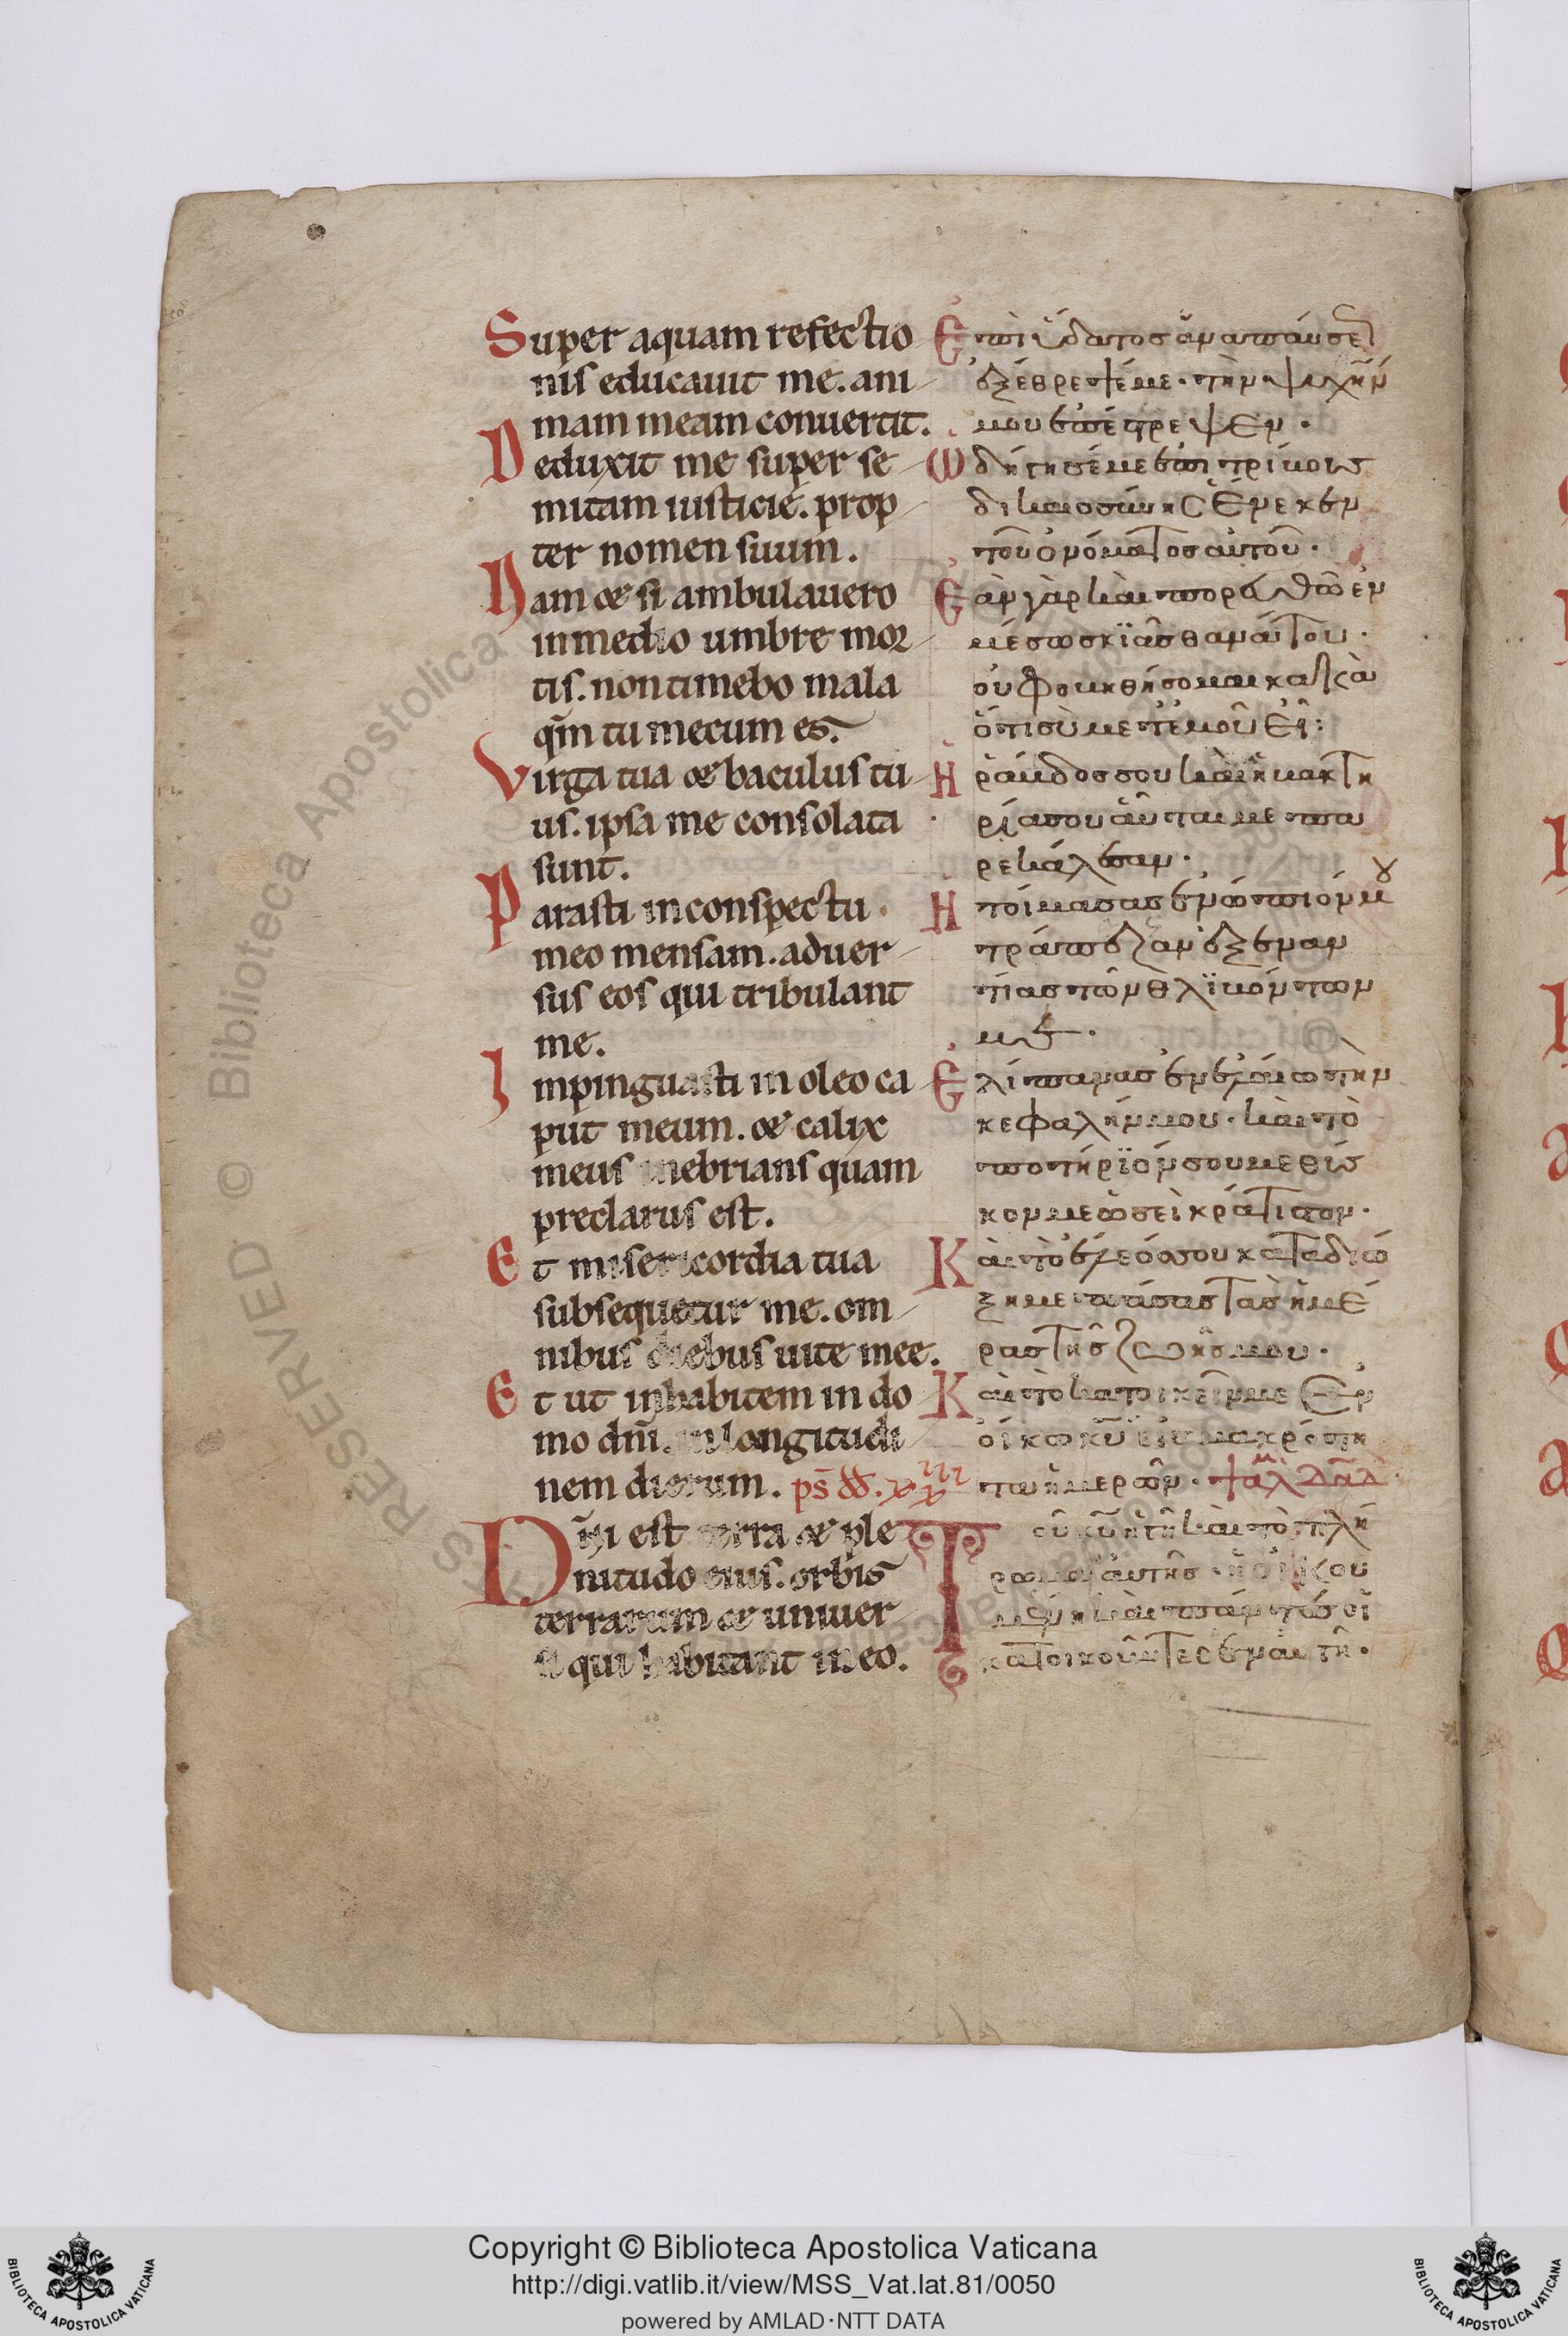 Super aquam refectio
nis educauit me. ani
mam meam conuertit.
Deduxit me super se
mitam iusticie. prop
ter nomen suum.
Nam & si ambulauero
in medio umbre mor
tis. non timebo mala
qm̄ tu mecum es.
Virga tua & baculus tu
us. ipsa me consolata
sunt.
Parasti in conspectu
meo mensam. aduer
sus eos qui tribulant
me.
Impinguasti in oleo ca
put meum. & calix
meus inebrians quam
preclarus est.
Et misericordia tua
subsequetur me. om
nibus diebus uite mee.
Et ut inhabitem in do
mo dn̄i. in longitudi
nem dierum. ps̄ dd. xxiii
Dn̄i est terra & ple
nitudo eius. orbis
terrarum & uniuer
si qui habitant in eo.
Ἐπὶ ὕδατος ἀναπαύσε
ἐξέθρεψέ με · τὴν ψυχήν
μου ἐπέτρεψεν ·
Ὡδήγησέ με ἐπι τρίβοισ
δικαιοσύνης ἕνεκεν
τοῦ ὀνόματος αὐτοῦ ·
Ἐὰν γὰρ καὶ πορευθῶ ἐν
μέσω σκϊᾶσ θανάτου ·
οὐ φοβηθήσομαι κακὰ
ὅτι σὺ μετ' ἐμοῦ εἶ:
Ἡ ράβδοσ σου καὶ ἡ βακτη
ρία σου αὗται με πα
ρεκάλεσαν ·
Ἡτοίμασασ ἐνώπιόν μου
τράπεζαν ἐξεναν
τίασ τῶν θλϊβόντων
με ·
Ἐλίπανασ ἐν ἐλαίω τὴν
κεφαλήν μου · καὶ τὸ
ποτήρϊόν σου μεθύσ
κον με ὡσεὶ κράτιστον ·
Καὶ τὸ ἔλεόσ σου καταδιώ
ξη με πάσασ τὰσ ἡμέ
ρασ τῆσ ζωῆσ μου ·
Καὶ τὸ κατοικεῖν με ἐν
οἴκω κῡ εἰσ μακρότη
τα ἡμερῶν · ψαλμ δᾱδ
Τοῦ κῡ ἡ γῆ καὶ τὸ πλή
ρωμα αὐτῆσ · ἡ οἰκου
μένη καὶ πάντεσ οἱ
κατοικοῦντες ἐν αὐτῆ ·
© Biblioteca Apostolica Vaticana
Copyright © Biblioteca Apostolica Vaticana
http://digi.vatlib.it/view/MSS_Vat.lat.81/0050
powered by AMLAD·NTT DATA
BIBLIOTECA APOSTOLICA VATICANA
BIBLIOTECA APOSTOLICA VATICANA